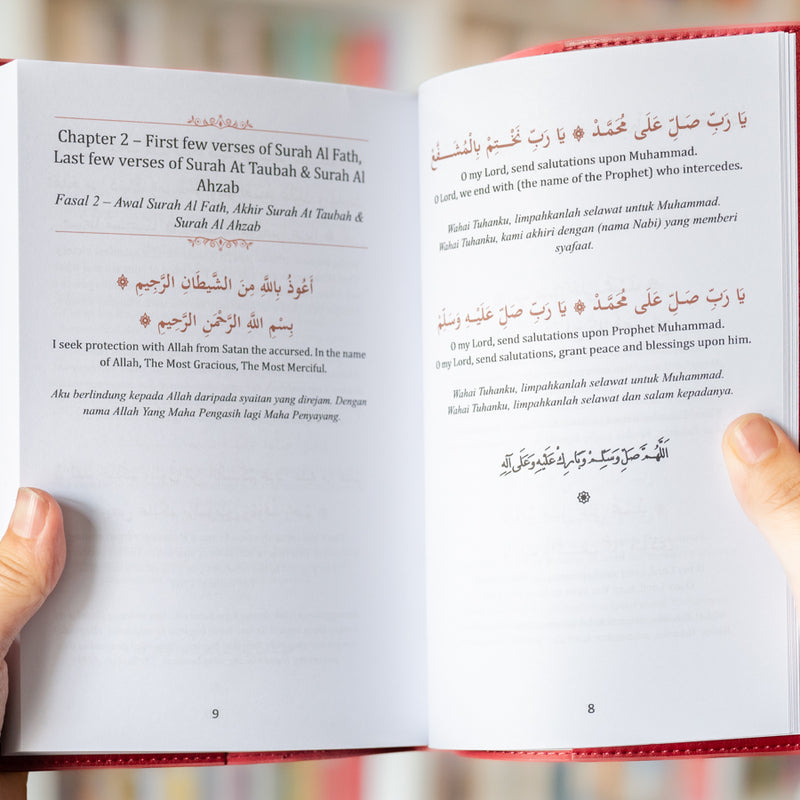 يَا رَبِّ صَلِّ عَلَى مُحَمَّدْ ۞ يَا رَبِّ نَخْتِمْ بِالْمُشَفَّعْ
O my Lord, send salutations upon Muhammad.
O Lord, we end with (the name of the Prophet) who intercedes.
Wahai Tuhanku, limpahkanlah selawat untuk Muhammad.
Wahai Tuhanku, kami akhiri dengan (nama Nabi) yang memberi
syafaat.
يَا رَبِّ صَلِّ عَلَى مُحَمَّدْ ۞ يَا رَبِّ صَلِّ عَلَيْهِ وَسَلِّمْ
O my Lord, send salutations upon Prophet Muhammad.
O my Lord, send salutations, grant peace and blessings upon him.
Wahai Tuhanku, limpahkanlah selawat untuk Muhammad.
Wahai Tuhanku, limpahkanlah selawat dan salam kepadanya.
اَللّٰهُمَّ صَلِّ وَسَلِّمْ وَبَارِكْ عَلَيْهِ وَعَلَى آلِهِ
8
Chapter 2 – First few verses of Surah Al Fath,
Last few verses of Surah At Taubah & Surah Al
Ahzab
Fasal 2 – Awal Surah Al Fath, Akhir Surah At Taubah &
Surah Al Ahzab
أَعُوذُ بِاللَّهِ مِنَ الشَّيْطَانِ الرَّجِيمِ ۞
بِسْمِ اللَّهِ الرَّحْمَنِ الرَّحِيمِ ۞
I seek protection with Allah from Satan the accursed. In the name
of Allah, The Most Gracious, The Most Merciful.
Aku berlindung kepada Allah daripada syaitan yang direjam. Dengan
nama Allah Yang Maha Pengasih lagi Maha Penyayang.
9